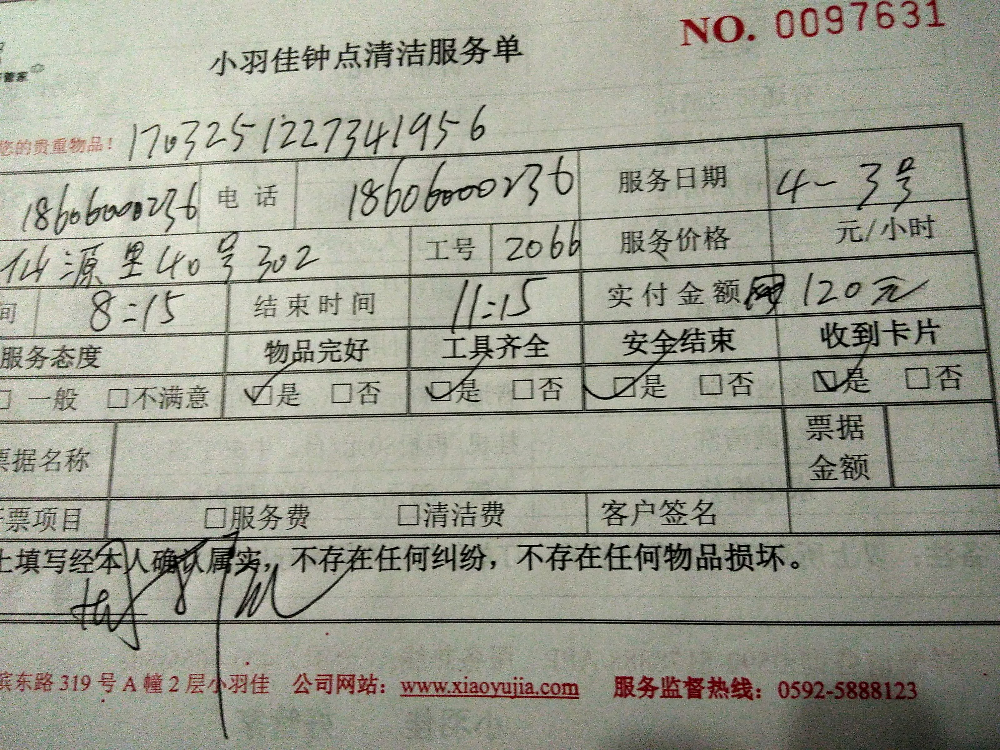 NO. 0097631
小羽佳钟点清洁服务单
管家
您的贵重物品! 1703251227341956
18606000236 电话 18606000236 服务日期 4-3号
仙源里40号302 工号 2066 服务价格 元/小时
间 8:15 结束时间 11:15 实付金额 网 120元
服务态度 物品完好 工具齐全 安全结束 收到卡片
□一般 □不满意 ☑是 □否 ☑是 □否 ☑是 □否 ☑是 □否
票据名称 票据金额
开票项目 □服务费 □清洁费 客户签名
上填写经本人确认属实，不存在任何纠纷，不存在任何物品损坏。
滨东路 319 号 A 幢 2 层小羽佳 公司网站：www.xiaoyujia.com 服务监督热线：0592-5888123